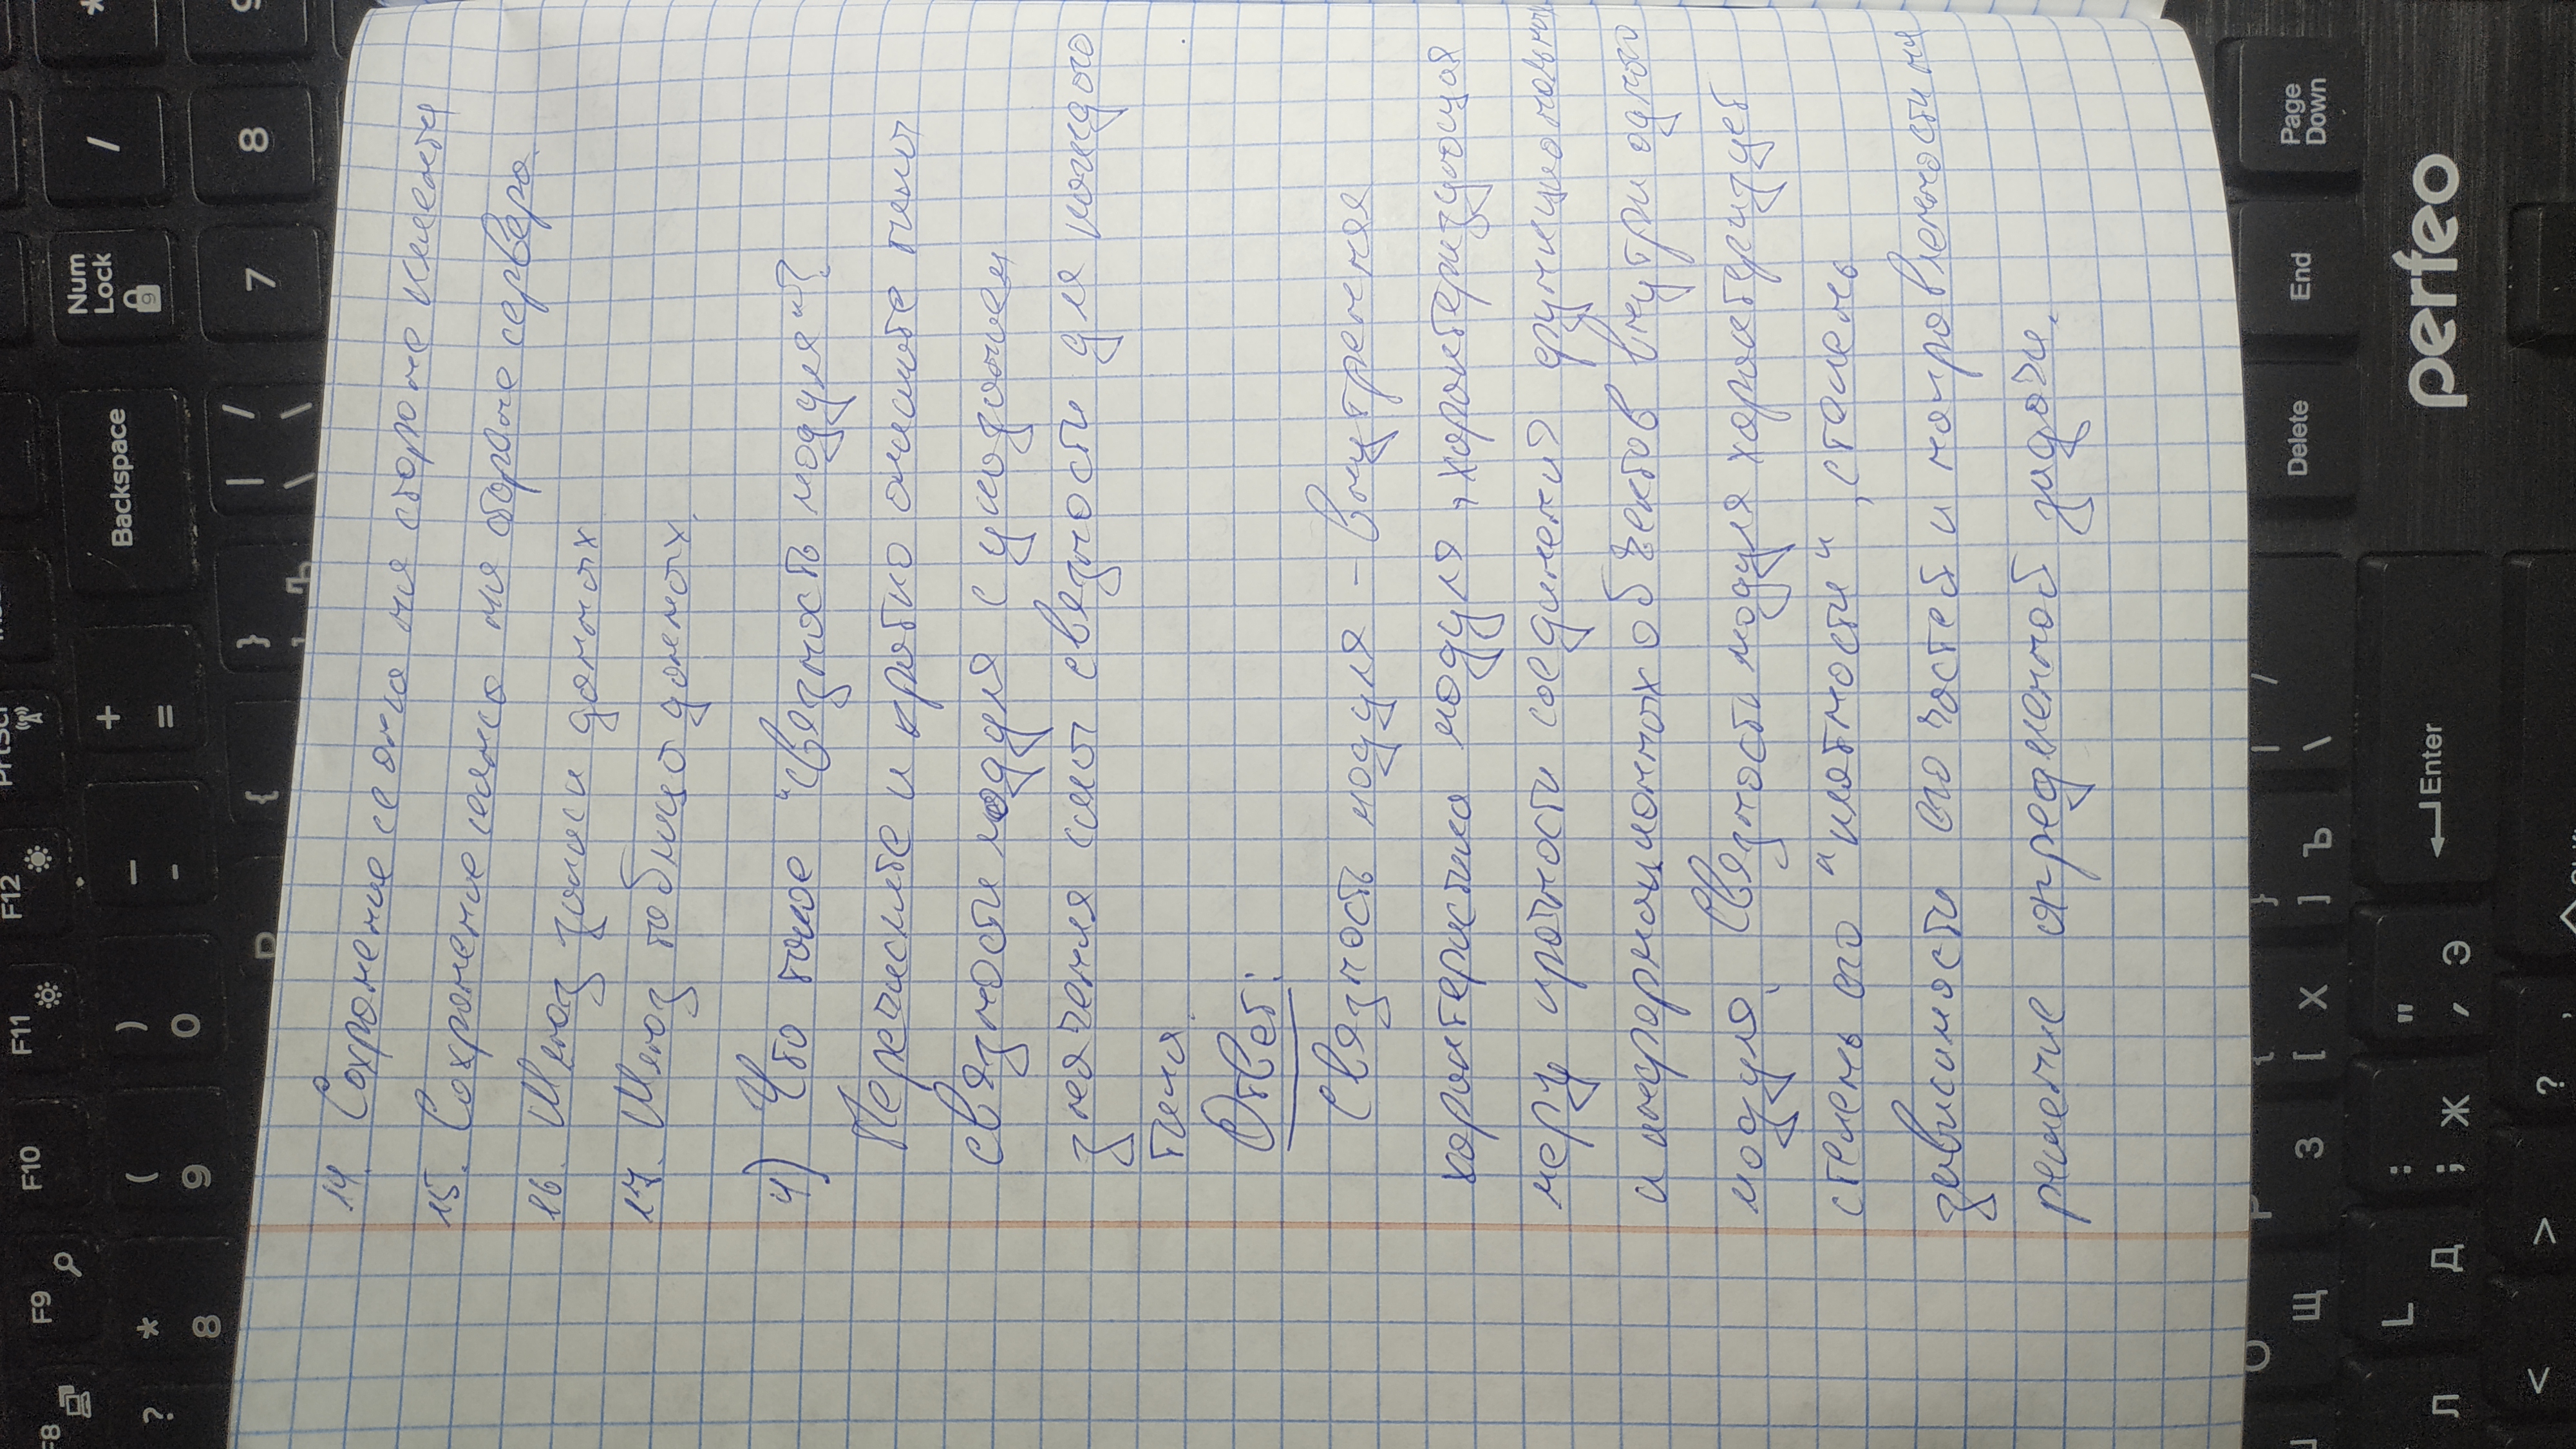 14. Сохранение сеанса на стороне клиента
15. Сохранение сеанса на стороне сервера.
16. Шлюз записи данных
17. Шлюз таблицы данных.
4) Что такое "связность модуля"?
Перечислите и кратко опишите типы
связности модуля с указанием
значения силы связности для каждого
типа.
Ответ:
Связность модуля – внутренняя
характеристика модуля, характеризующая
меру прочности соединения функциональных
и информационных объектов внутри одного
модуля. Связность модуля характеризует
степень его "плотности", степень
зависимости его частей и направленности на
решение определенной задачи.
F8 F9 F10 F11 F12 PrtScr
? * 8 ( 9 ) 0 _ - + = Backspace
Num Lock / *
{ } | \ / 7 8 9
O P { } | /
Щ З [ Х ] Ъ \ Delete End Page Down
Л L Д : ; Ж " ' Э Enter
perfeo
< > ?